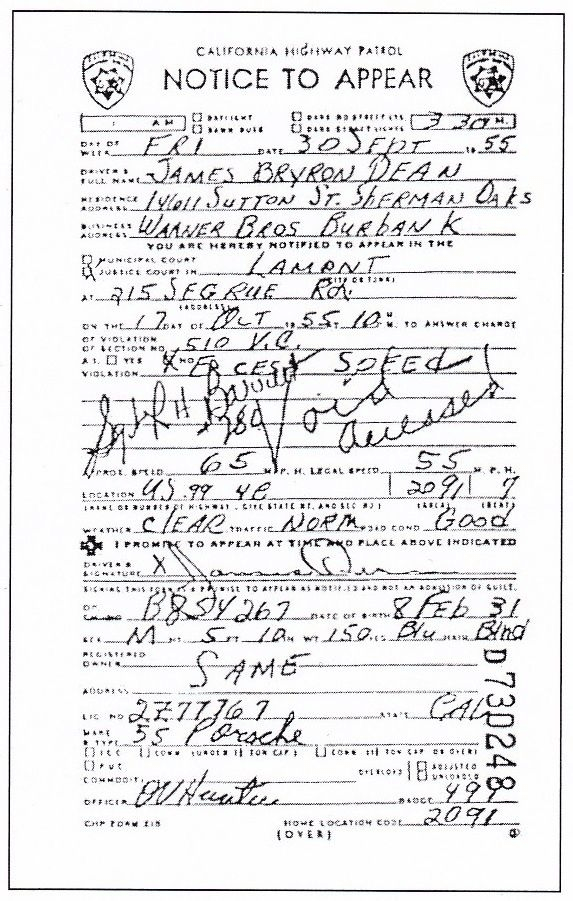 CALIFORNIA HIGHWAY PATROL
NOTICE TO APPEAR
AM DAYLIGHT DARK NO STREET LTS 3 30 M.
DAWN DUSK DARK STREET LIGHTS
DAY OF WEEK FRI DATE 30 SEPT 1955
DRIVER'S FULL NAME JAMES BRYRON DEAN
RESIDENCE ADDRESS 14611 SUTTON ST. SHERMAN OAKS
BUSINESS ADDRESS WARNER BROS BURBANK
YOU ARE HEREBY NOTIFIED TO APPEAR IN THE
MUNICIPAL COURT
JUSTICE COURT IN LAMONT
(CITY OR TOWN)
AT 215 SEGRUE Rd.
(ADDRESS)
ON THE 17 DAY OF OCT 1955 AT 10 M. TO ANSWER CHARGE
OF VIOLATION OF SECTION NO. 510 V.C.
YES X NO
VIOLATION EXCESS SPEED
Sgt R H
Void
deceased
APROX. SPEED 65 M.P.H. LEGAL SPEED 55 M.P.H.
LOCATION US.99 2091 7
(NAME OR NUMBER OF HIGHWAY (AREA) (BEAT)
WEATHER CLEAR TRAFFIC NORM ROAD COND Good
I PROMISE TO APPEAR AT TIME AND PLACE ABOVE INDICATED
DRIVER'S SIGNATURE X James Dean
SIGNING THIS FORM IS A PROMISE TO APPEAR AS NOTIFIED AND NOT AN ADMISSION OF GUILT.
DATE OF BIRTH 8 FEB 31
SEX M HT 5 FT 10 IN WT 150 Blu HAIR Blnd
REGISTERED OWNER SAME
ADDRESS
LIC. NO 2Z77767 STATE CAL
MAKE & TYPE 55 Porsche
ICC COMM (UNDER TON CAP) COMM TON CAP OR OVER)
PUC OVERLOAD ADJUSTED
COMMODITY UNLOADED
OFFICER OV Hunter BADGE 499
CHP FORM 215 HOME LOCATION CODE 2091
(OVER)
D 730248